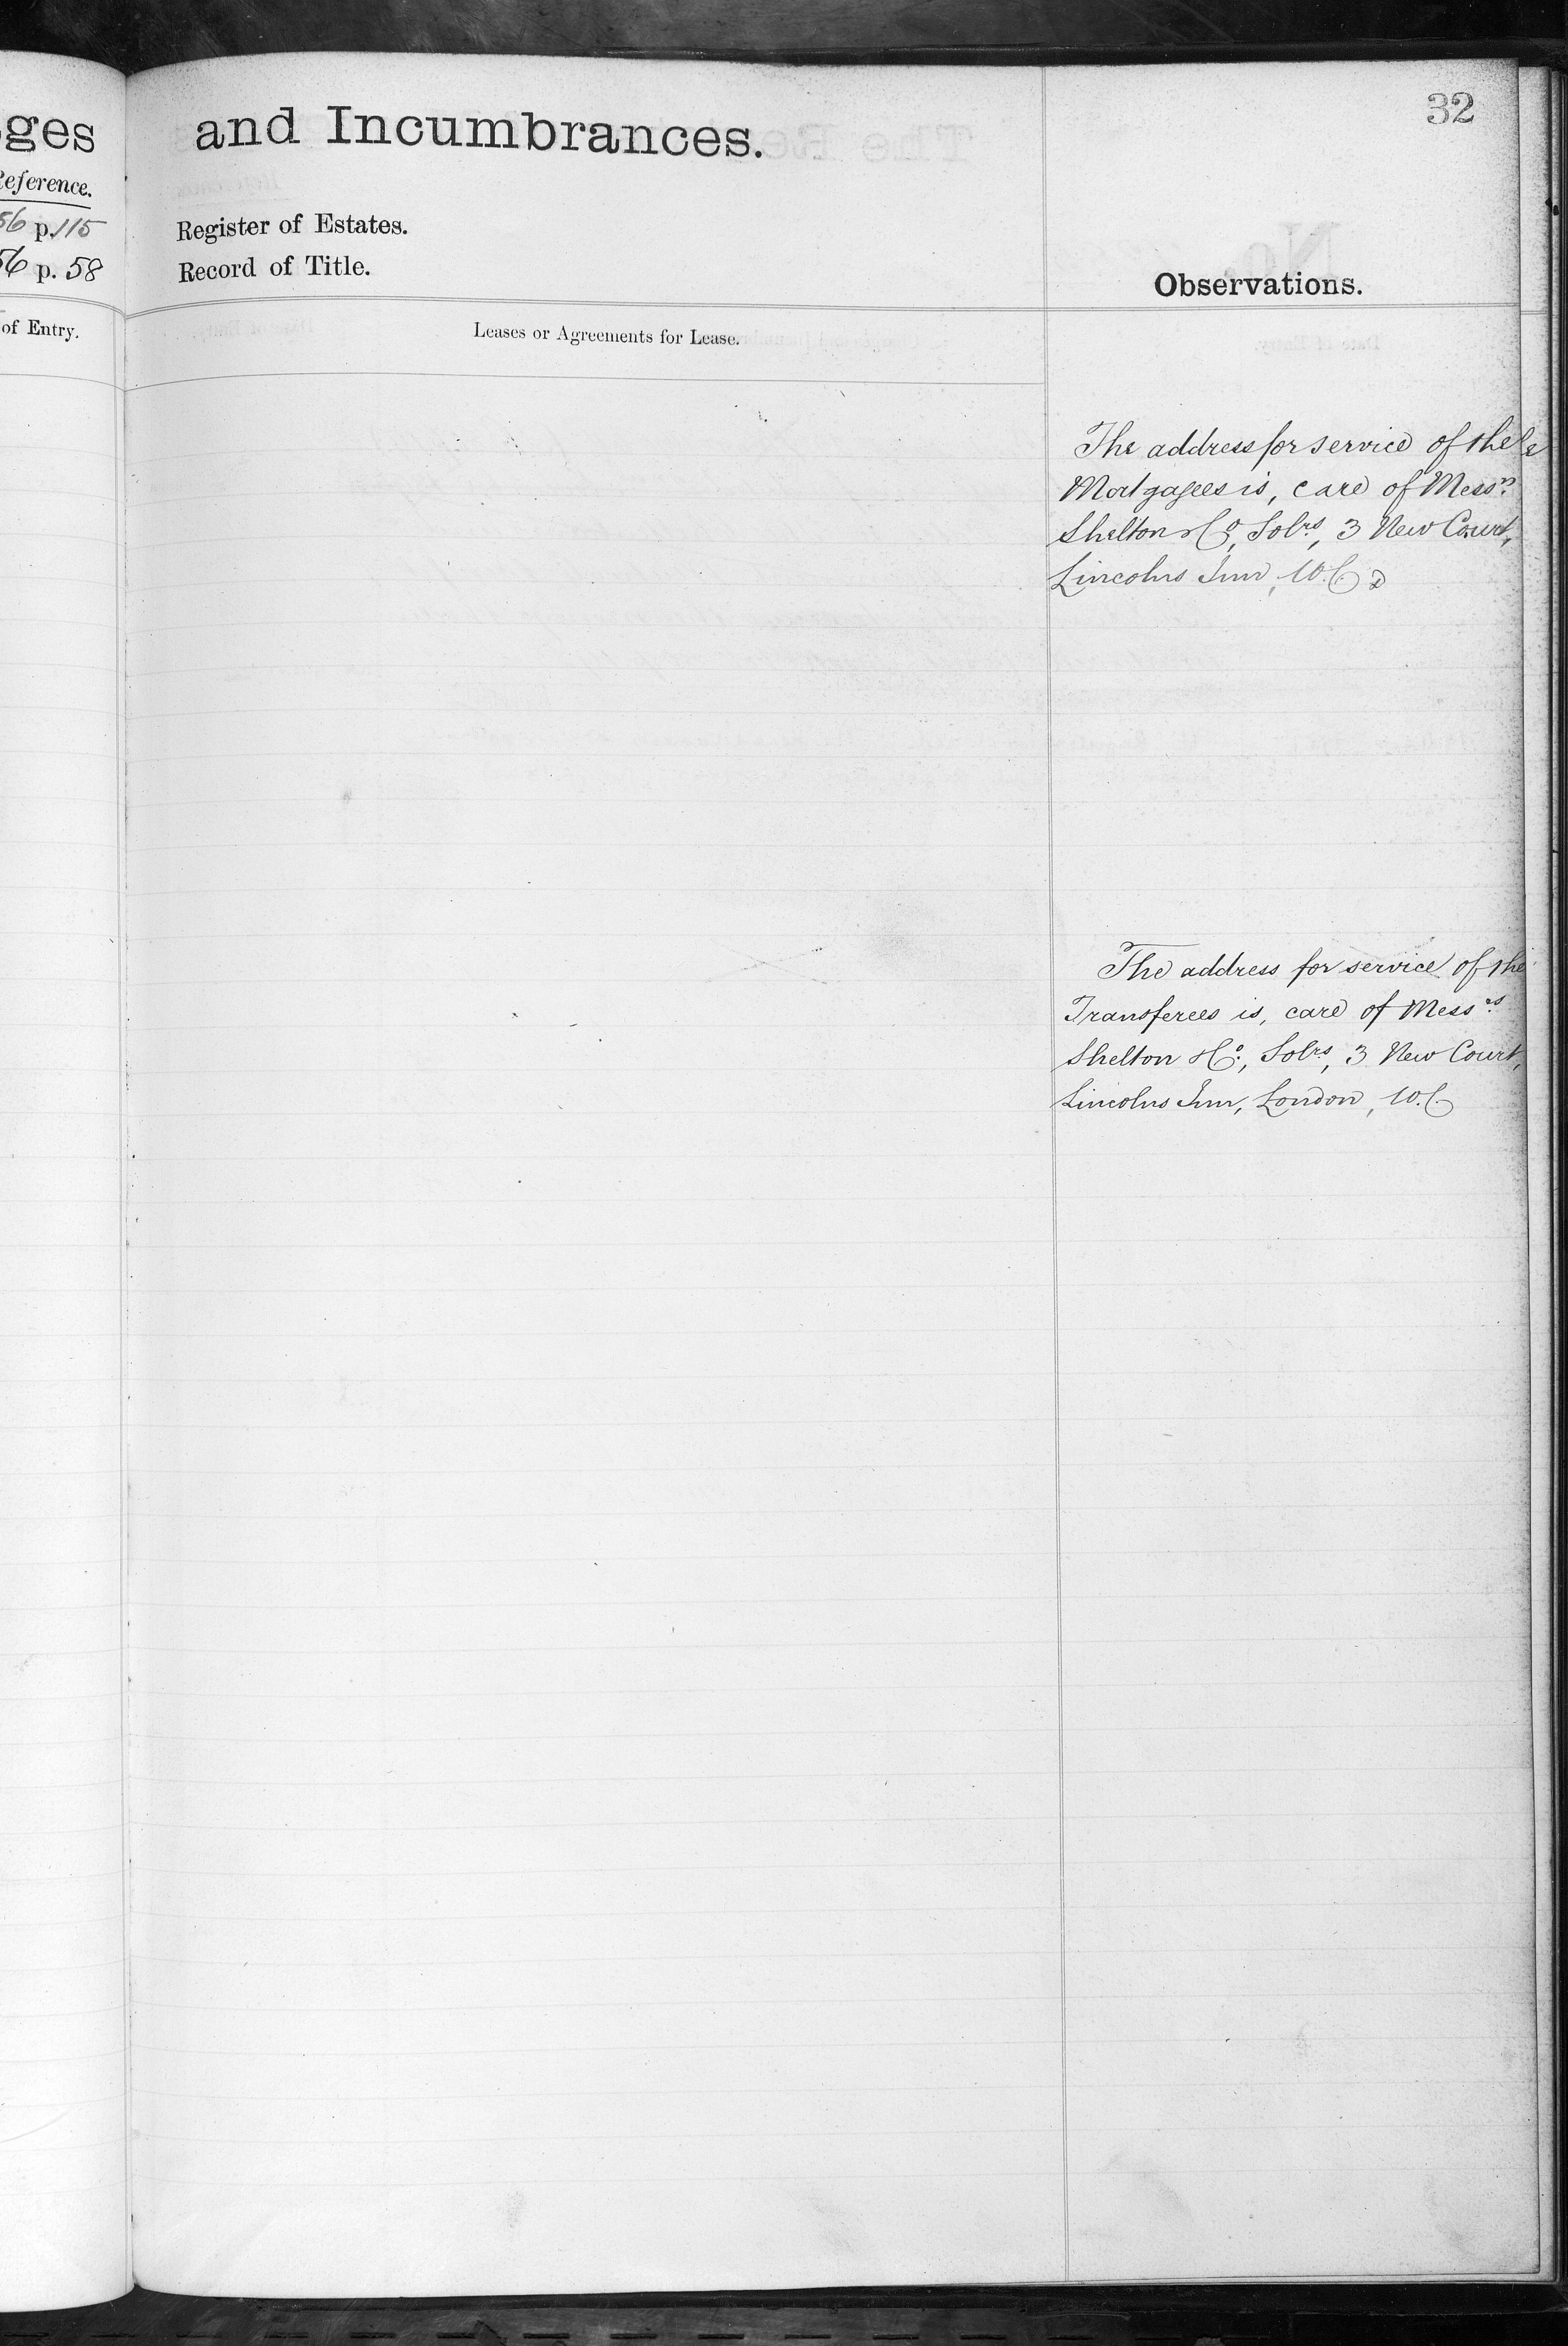 ges
Reference.
56 p. 115
56 p. 58
of Entry.
32
and Incumbrances.
Register of Estates.
Record of Title.
Observations.
Leases or Agreements for Lease.
The address for service of the
Mortgagees is, care of Messrs
Shelton & Co, Solrs, 3 New Court,
Lincolns Inn, W.C.
The address for service of the
Transferees is, care of Messrs
Shelton & Co:, Solrs, 3 New Court,
Lincolns Inn, London, W.C.